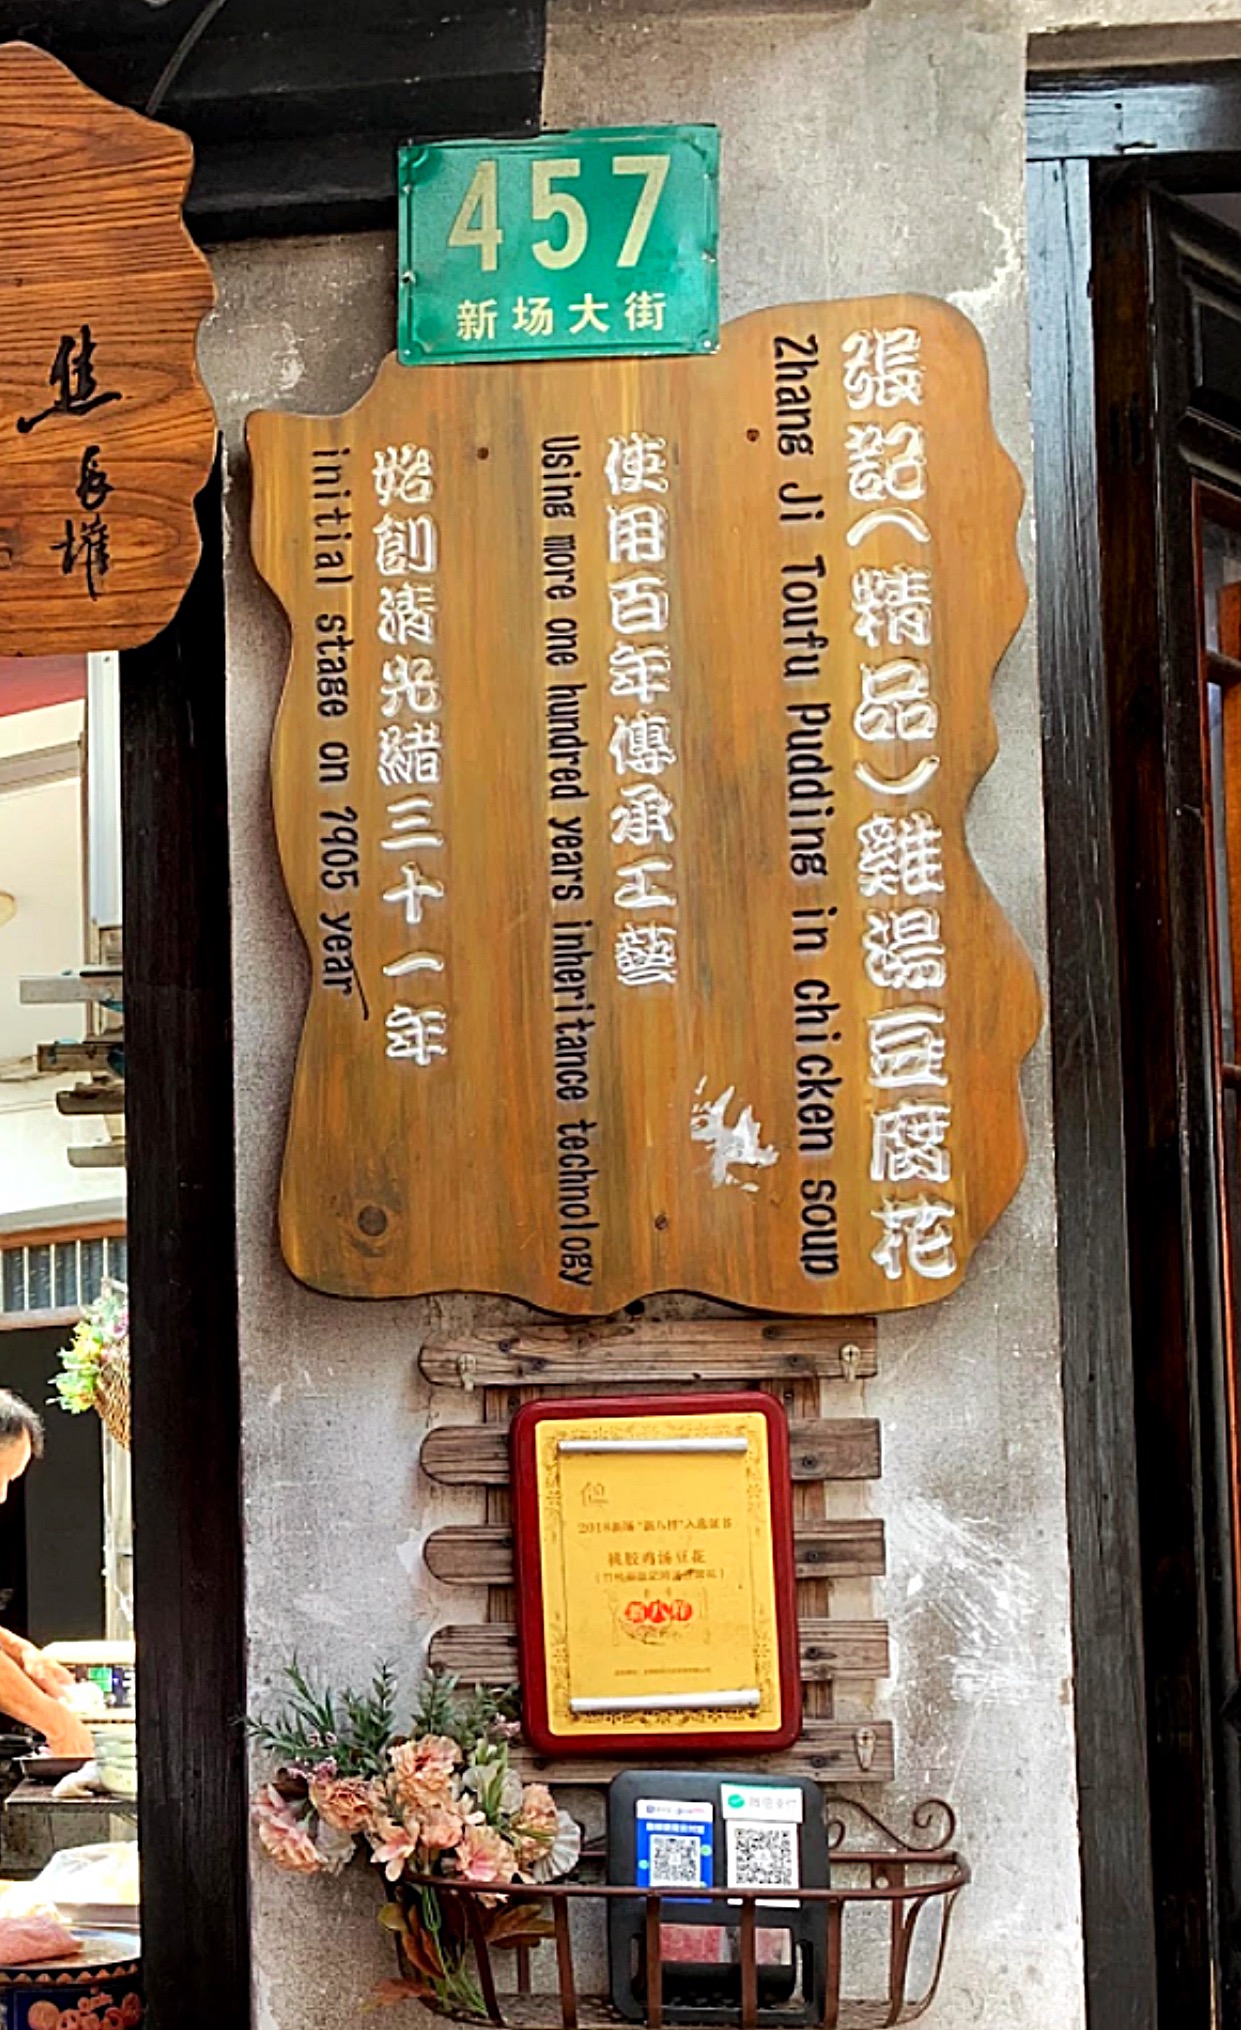 457
新场大街
張記（精品）雞湯豆腐花
Zhang Ji Toufu pudding in chicken soup
使用百年傳承工藝
Using more one hundred years inheritance technology
始創清光緒三十一年
initial stage on 1905 year
2018新场"新八样"入选证书
桃胶鸡汤豆花
新八样